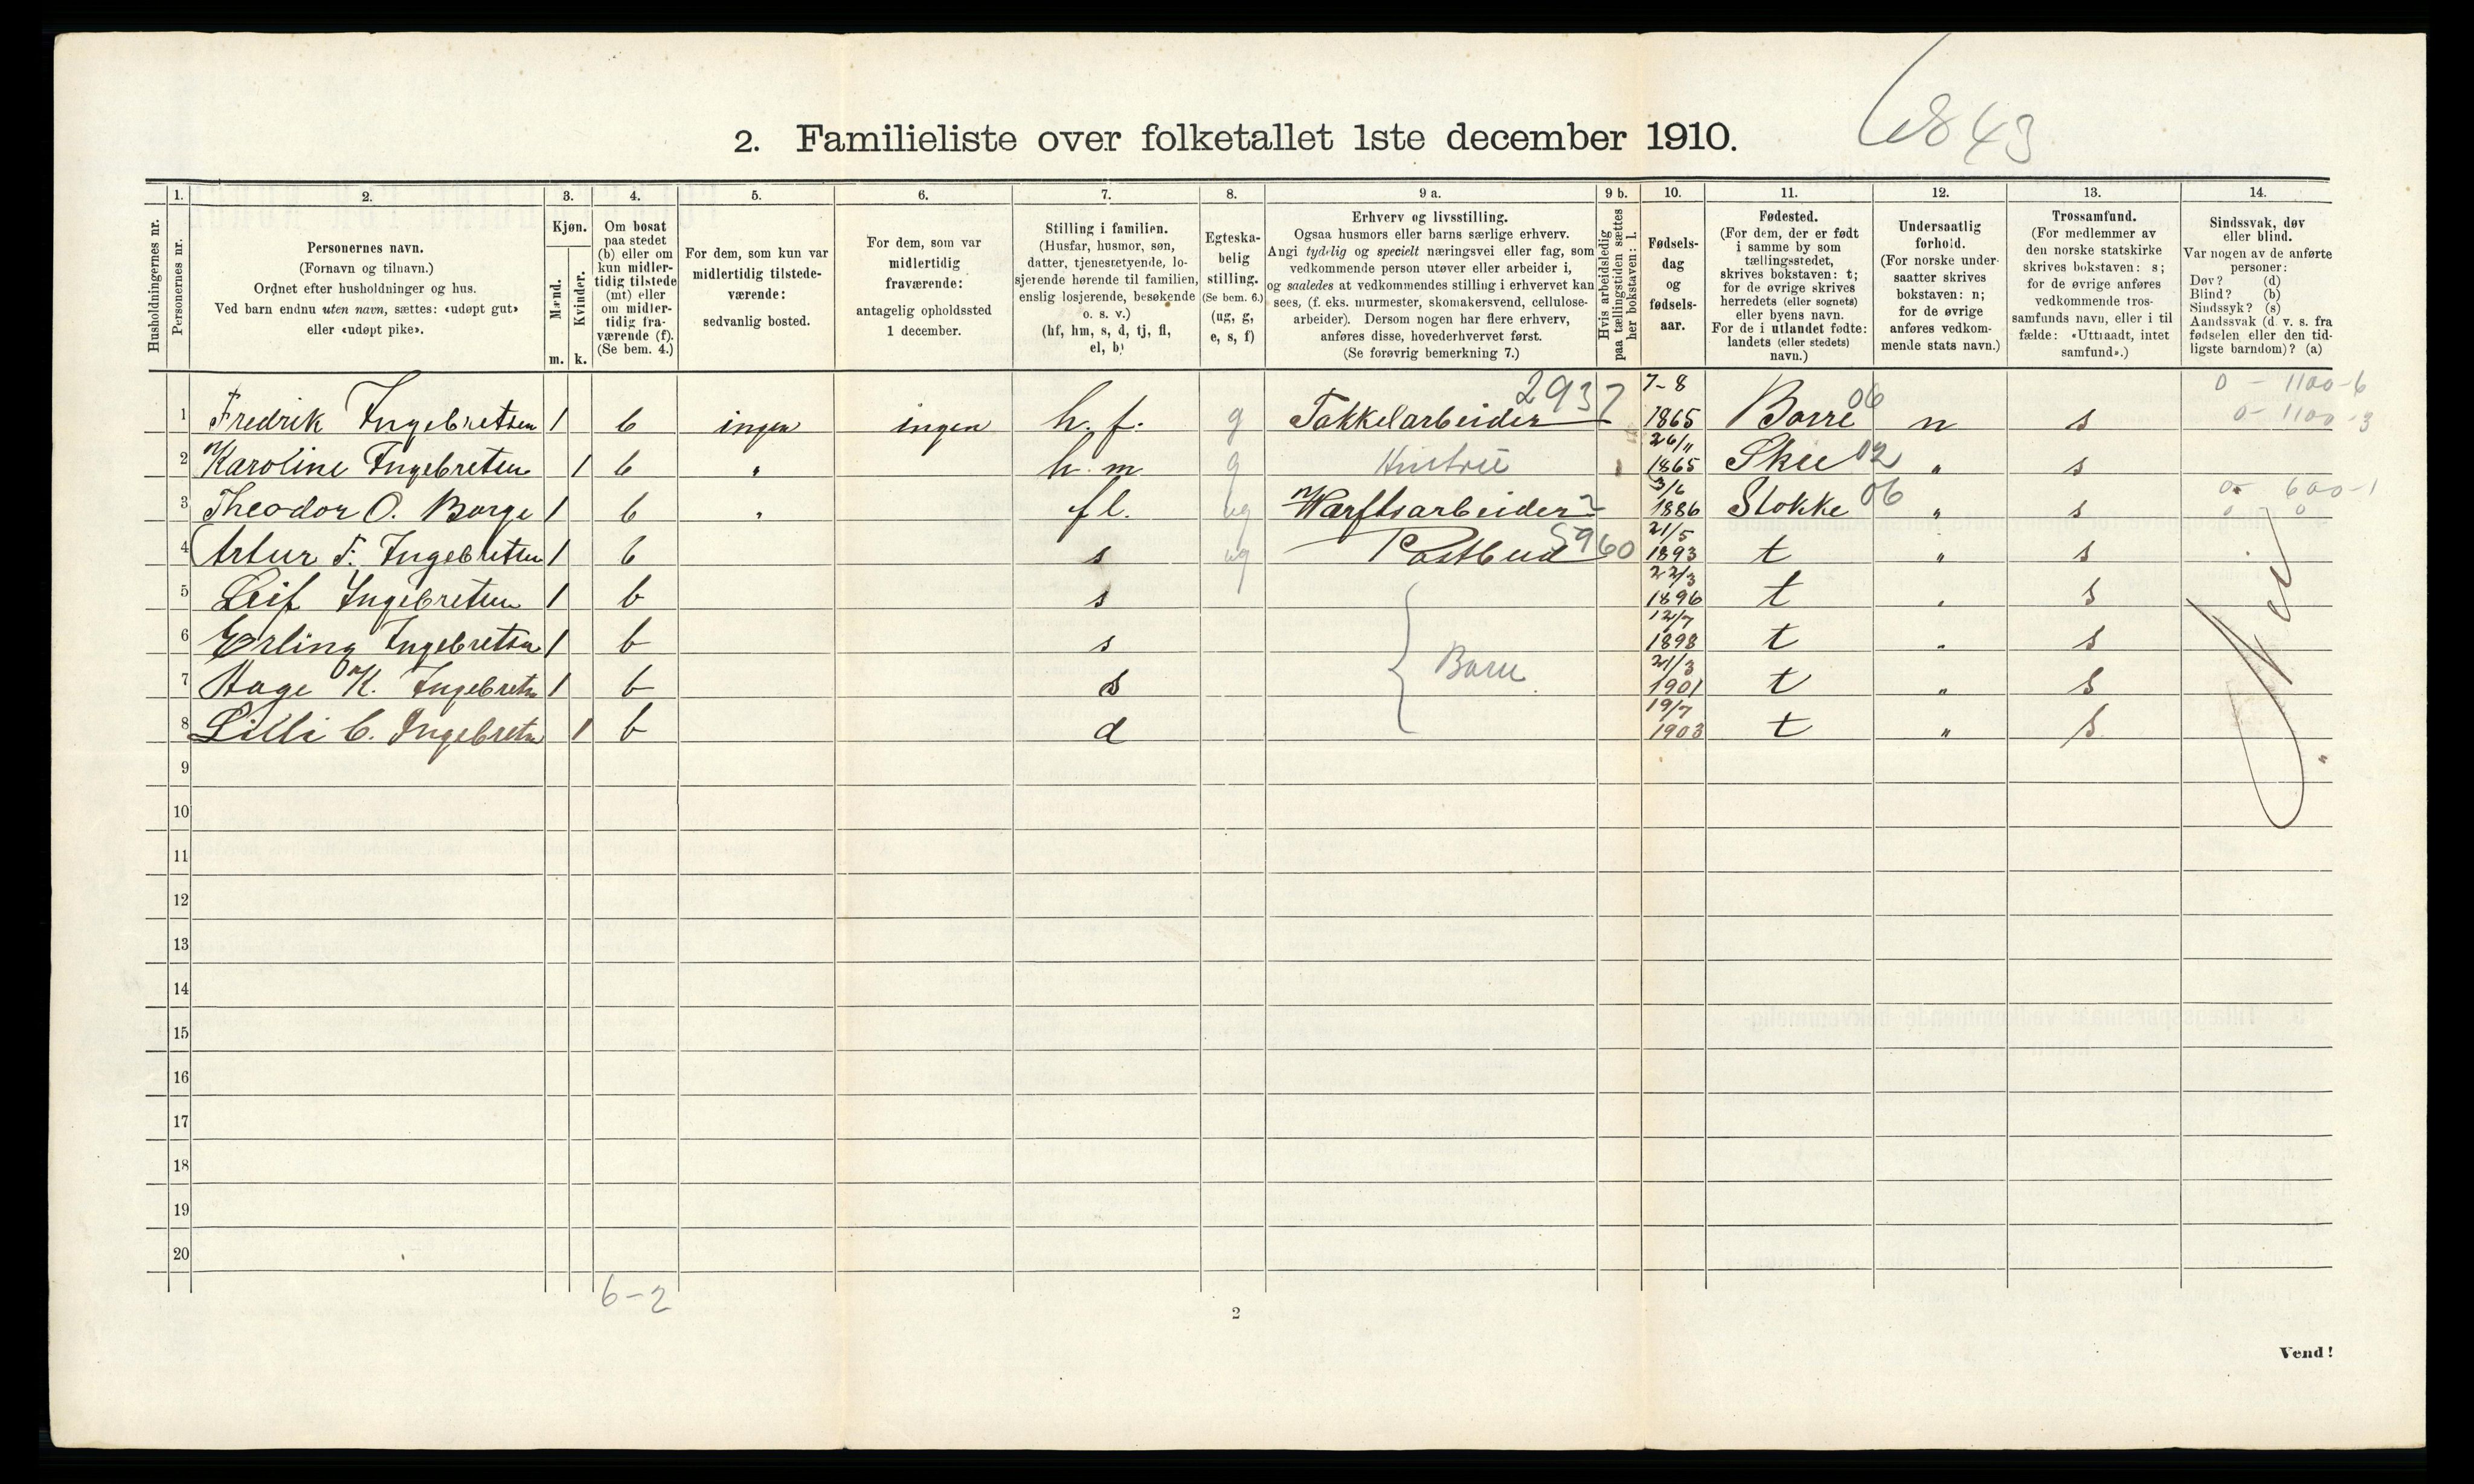 6843
2. Familieliste over folketallet 1ste december 1910.
Husholdningernes nr.
1. Personernes nr.
2. Personernes navn.
(Fornavn og tilnavn.)
Ordnet efter husholdninger og hus.
Ved barn endnu uten navn, sættes: «udøpt gut»
eller «udøpt pike».
3. Kjøn.
Mænd. m.
Kvinder. k.
4. Om bosat
paa stedet
(b) eller om
kun midler-
tidig tilstede
(mt) eller
om midler-
tidig fra-
værende (f).
(Se bem. 4.)
5. For dem, som kun var
midlertidig tilstede-
værende:
sedvanlig bosted.
6. For dem, som var
midlertidig
fraværende:
antagelig opholdssted
1 december.
7. Stilling i familien.
(Husfar, husmor, søn,
datter, tjenestetyende, lo-
sjerende hørende til familien,
enslig losjerende, besøkende
o. s. v.)
(hf, hm, s, d, tj, fl,
el, b)
8. Egteska-
belig
stilling.
(Se bem. 6.)
(ug, g,
e, s, f)
9 a. Erhverv og livsstilling.
Ogsaa husmors eller barns særlige erhverv.
Angi tydelig og specielt næringsvei eller fag, som
vedkommende person utøver eller arbeider i,
og saaledes at vedkommendes stilling i erhvervet kan
sees, (f. eks. murmester, skomakersvend, cellulose-
arbeider). Dersom nogen har flere erhverv,
anføres disse, hovederhvervet først.
(Se forøvrig bemerkning 7.)
9 b. Hvis arbeidsledig
paa tællingstiden sættes
her bokstaven: l.
10. Fødsels-
dag
og
fødsels-
aar.
11. Fødested.
(For dem, der er født
i samme by som
tællingsstedet,
skrives bokstaven: t;
for de øvrige skrives
herredets (eller sognets)
eller byens navn.
For de i utlandet fødte:
landets (eller stedets)
navn.)
12. Undersaatlig
forhold.
(For norske under-
saatter skrives
bokstaven: n;
for de øvrige
anføres vedkom-
mende stats navn.)
13. Trossamfund.
(For medlemmer av
den norske statskirke
skrives bokstaven: s;
for de øvrige anføres
vedkommende tros-
samfunds navn, eller i til
fælde: «Uttraadt, intet
samfund».)
14. Sindssvak, døv
eller blind.
Var nogen av de anførte
personer:
Døv? (d)
Blind? (b)
Sindssyk? (s)
Aandssvak (d. v. s. fra
fødselen eller den tid-
ligste barndom)? (a)
2937 7-8 06 0 - 1100-6
1 Fredrik Ingebretsen 1 b ingen ingen h. f. g Takkelarbeider 1865 Borre n s 0- 1100-3
26/11
2 Karoline Ingebretsen 1 b " h. m g Hustru 1865 Skee 02 " s
3/6
3 Theodor O. Borge 1 b " fl. ug Warftsarbeider 2 1886 Stokke 06 " s 0- 600-1
21/5
4 Artur F. Ingebretsen 1 b s ug Postbud 5960 1893 t " s
22/3
5 Leif Ingebretsen 1 b s 1896 t " s
12/7
6 Erling Ingebretsen 1 b s Barn 1898 t " s
21/3
7 Hage K. Ingebretsn 1 b s 1901 t " s Nei
19/7
8 Lilli C. Ingebretsn 1 b d 1903 t " s
9
10
11
12
13
14
15
16
17
18
19
20
6-2
2
Vend!